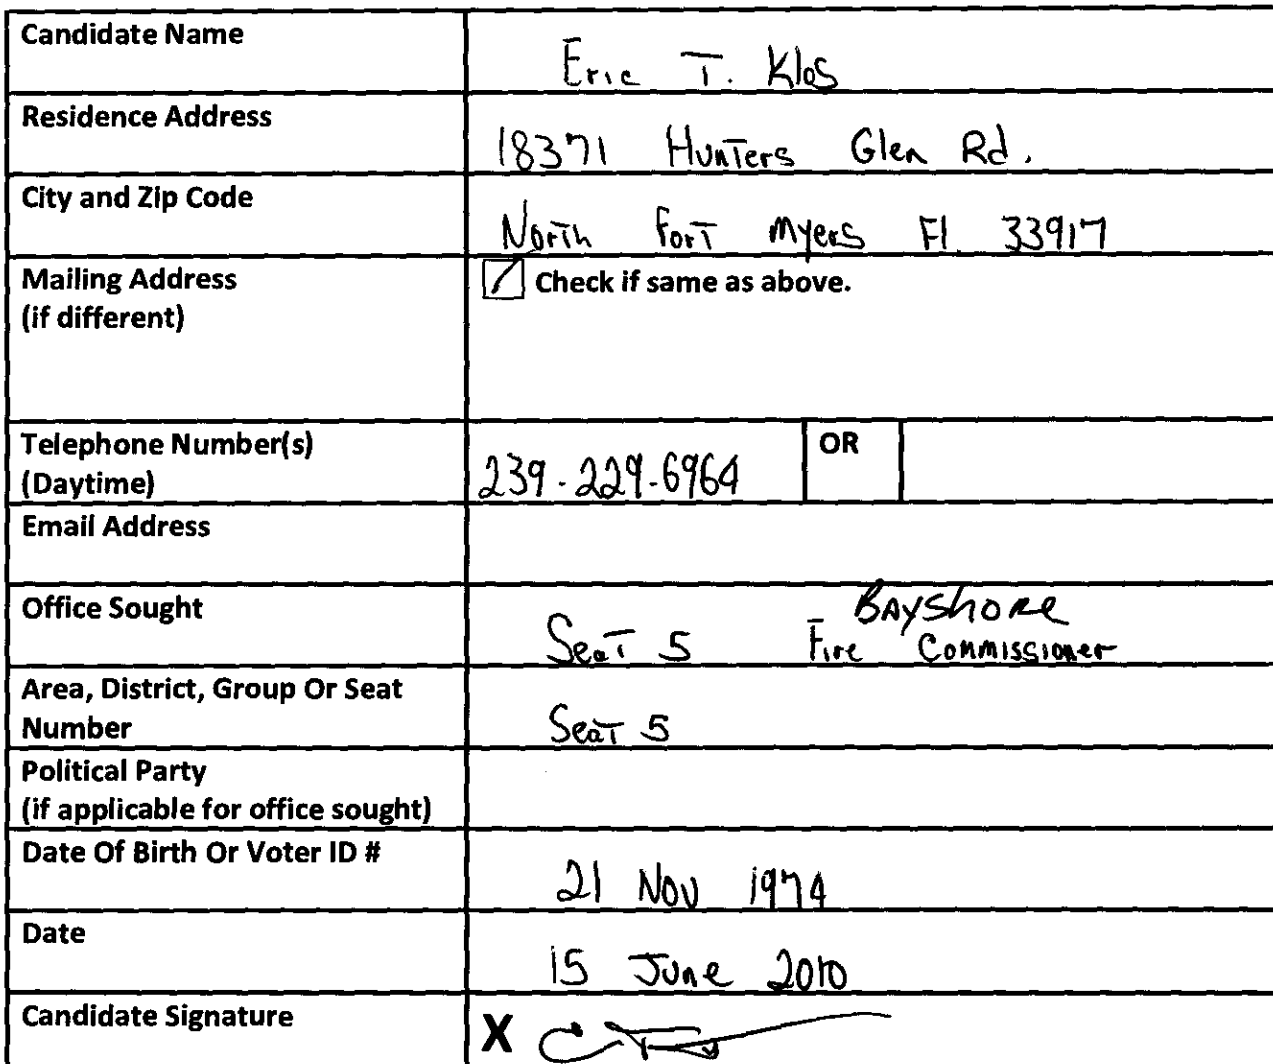 Candidate Name Eric T. Klos
Residence Address 18371 Hunters Glen Rd.
City and Zip Code North Fort Myers Fl 33917
Mailing Address
(if different)
Check if same as above.
Telephone Number(s)
(Daytime)
239-229-6964 OR
Email Address
Office Sought
Bayshore
Seat 5 Fire Commissioner
Area, District, Group Or Seat
Number
Seat 5
Political Party
(if applicable for office sought)
Date Of Birth Or Voter ID # 21 Nov 1974
Date 15 June 2010
Candidate Signature X